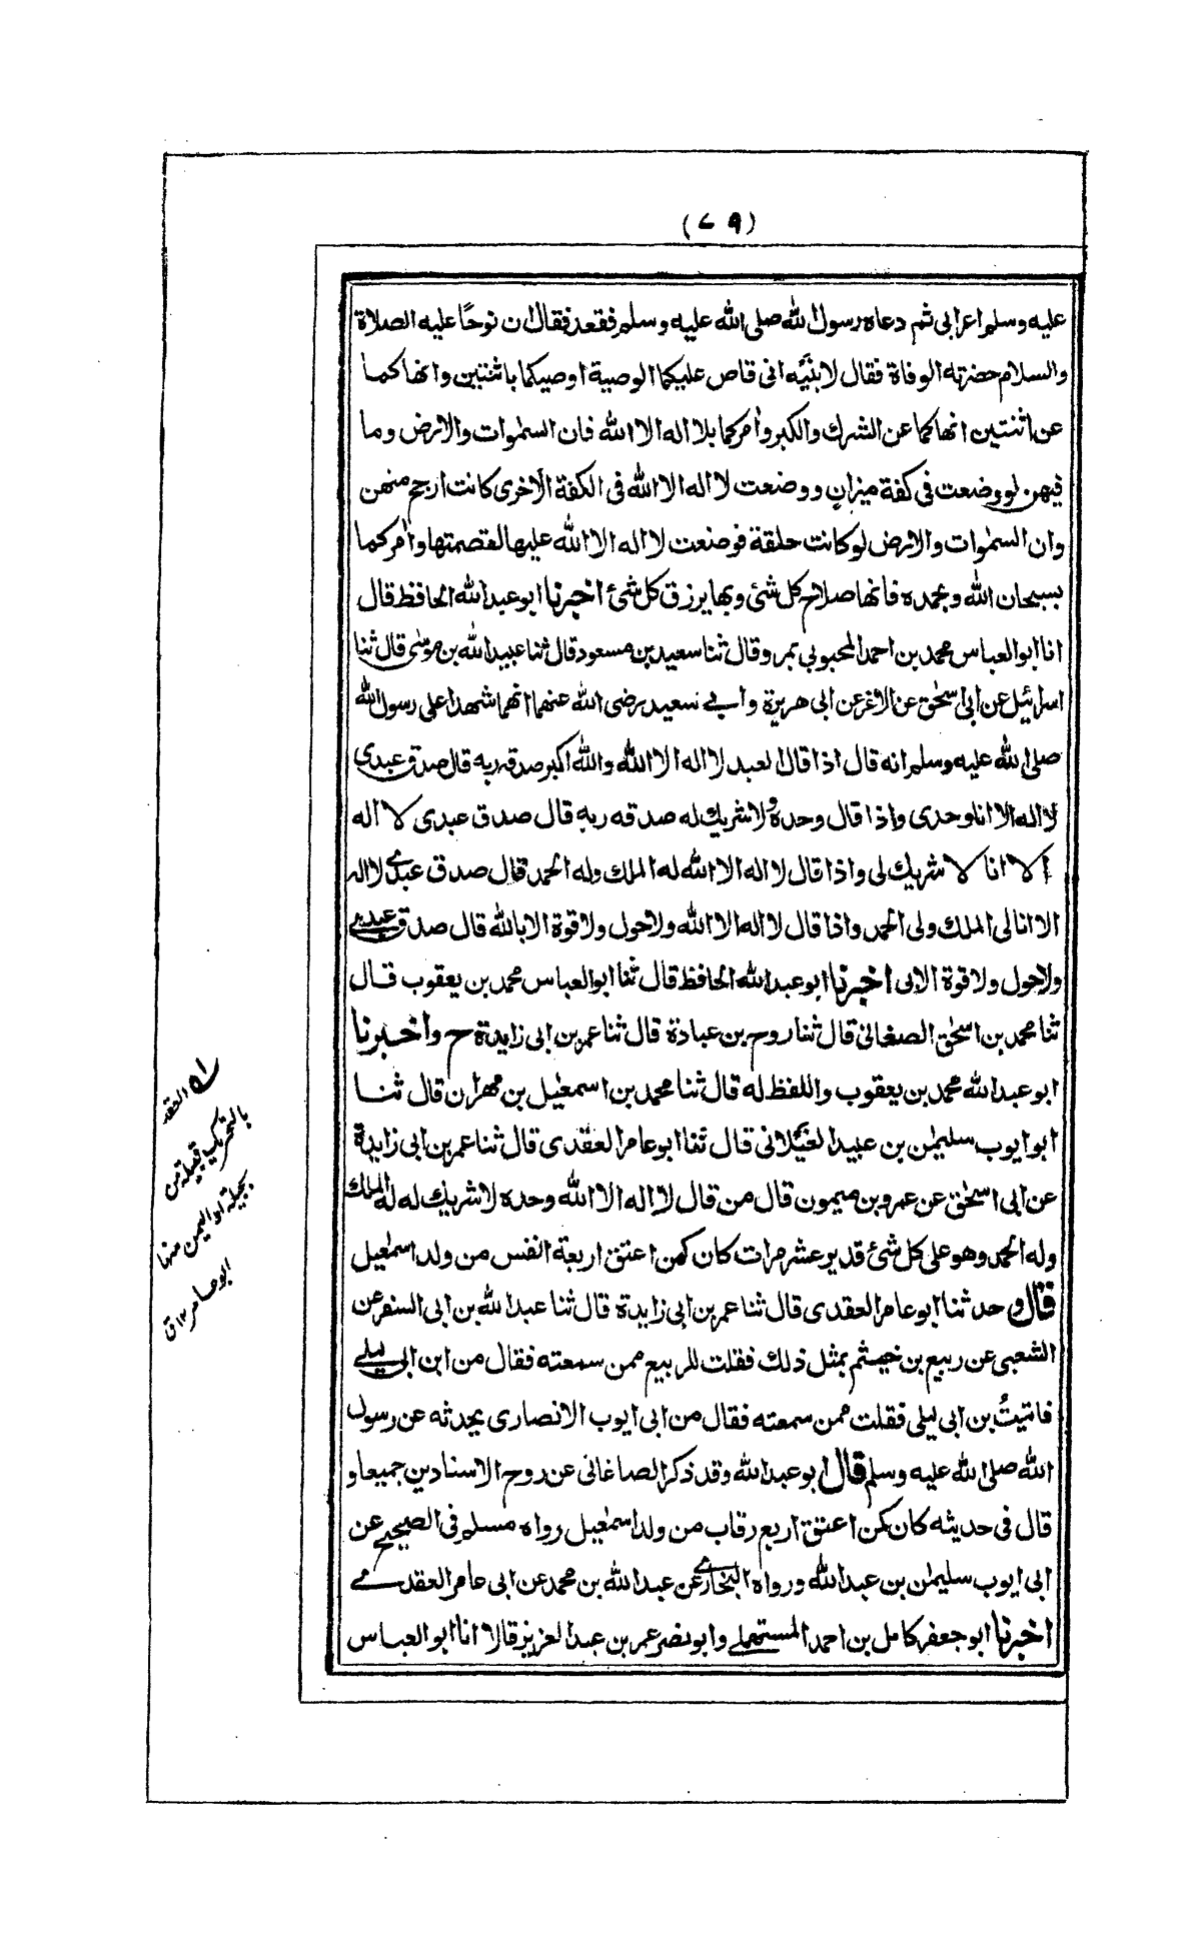 (٧٩)
عليه وسلم اعرابى ثم دعاه رسول الله صلى الله عليه وسلم فقعد فقال ان نوحًا عليه الصلاة
والسلام حضرته الوفاة فقال لابنَيه انى قاص عليكما الوصية اوصيكما باثنتين وانهاكما
عن اثنتين انهاكما عن الشرك والكبر وآمركما بلا اله الا الله فان السمٰوات والارض وما
فيهن لو وضعت فى كفة ميزانٍ ووضعت لا اله الا الله فى الكفة الاخرى كانت ارجح منهن
وان السمٰوات والارض لو كانت حلقة فوضعت لا اله الا الله عليها لقصمتها وآمركما
بسبحان الله وبحمده فانها صلاة كل شئ وبها يرزق كل شئ اخبرنا ابو عبد الله الحافظ قال
انا ابو العباس محمد بن احمد المحبوبي بمرو قال ثنا سعيد بن مسعود قال ثنا عبيد الله بن موسٰى قال ثنا
اسرائيل عن ابى اسحٰق عن الاغر عن ابى هريرة وابي سعيد رضى الله عنهما انهما شهدا على رسول الله
صلى الله عليه وسلم انه قال اذا قال العبد لا اله الا الله والله اكبر صدقه ربه قال صدق عبدى
لا اله الا انا وحدى واذا قال وحده ولا شريك له صدقه ربه قال صدق عبدى لا اله
الا انا لا شريك لى واذا قال لا اله الا الله له الملك وله الحمد قال صدق عبدي لا اله
الا انا لى الملك ولى الحمد واذا قال لا اله الا الله ولا حول ولا قوة الا بالله قال صدق عبدي
ولا حول ولا قوة الا بى اخبرنا ابو عبد الله الحافظ قال ثنا ابو العباس محمد بن يعقوب قال
ثنا محمد بن اسحٰق الصغانى قال ثنا روح بن عبادة قال ثنا عمر بن ابى زايدة ح واخبرنا
ابو عبد الله محمد بن يعقوب واللفظ له قال ثنا محمد بن اسمعيل بن مهران قال ثنا
ابو ايوب سليمٰن بن عبيد الله الغيلانى قال ثنا ابو عامر العقدى قال ثنا عمر بن ابى زايدة
عن ابى اسحٰق عن عمرو بن ميمون قال من قال لا اله الا الله وحده لا شريك له له الملك
وله الحمد وهو على كل شئ قدير عشر مرات كان كمن اعتق اربعة انفس من ولد اسمٰعيل
قال وحدثنا ابو عامر العقدى قال ثنا عمر بن ابى زايدة قال ثنا عبد الله بن ابى السفر عن
الشعبى عن ربيع بن خيثم بمثل ذلك فقلت للربيع ممن سمعته فقال من ابن ابى ليلي
فاتيتُ بن ابى ليلى فقلت ممن سمعته فقال من ابى ايوب الانصارى يحدثه عن رسول
الله صلى الله عليه وسلم قال ابو عبد الله وقد ذكر الصاغانى عن روح الاسنادين جميعا و
قال فى حديثه كان كمن اعتق اربع رقاب من ولد اسمٰعيل رواه مسلم فى الصحيح عن
ابى ايوب سليمٰن بن عبد الله ورواه البخاري عن عبد الله بن محمد عن ابى عامر العقدي
اخبرنا ابو جعفر كامل بن احمد المستملي وابو نصر عمر بن عبد العزيز قالا انا ابو العباس
العقد
بالتحريك قبيلة من
بجيلة او اليمن منها
ابو عامر ١٢ ق